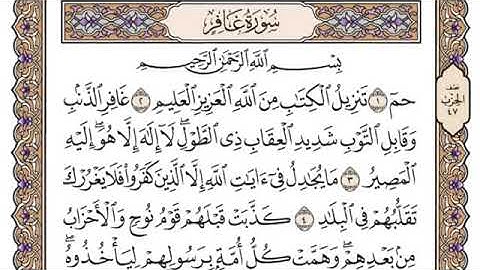 سُورَةُ غَافِرٍ
بِسْمِ ٱللَّهِ ٱلرَّحْمَٰنِ ٱلرَّحِيمِ
حمٓ ١ تَنزِيلُ ٱلْكِتَٰبِ مِنَ ٱللَّهِ ٱلْعَزِيزِ ٱلْعَلِيمِ ٢ غَافِرِ ٱلذَّنۢبِ
وَقَابِلِ ٱلتَّوْبِ شَدِيدِ ٱلْعِقَابِ ذِى ٱلطَّوْلِۖ لَآ إِلَٰهَ إِلَّا هُوَۖ إِلَيْهِ
ٱلْمَصِيرُ ٣ مَا يُجَٰدِلُ فِىٓ ءَايَٰتِ ٱللَّهِ إِلَّا ٱلَّذِينَ كَفَرُوا۟ فَلَا يَغْرُرْكَ
تَقَلُّبُهُمْ فِى ٱلْبِلَٰدِ ٤ كَذَّبَتْ قَبْلَهُمْ قَوْمُ نُوحٍ وَٱلْأَحْزَابُ
مِنۢ بَعْدِهِمْۖ وَهَمَّتْ كُلُّ أُمَّةٍۭ بِرَسُولِهِمْ لِيَأْخُذُوهُۖ
نصف
الحزب
٤٧